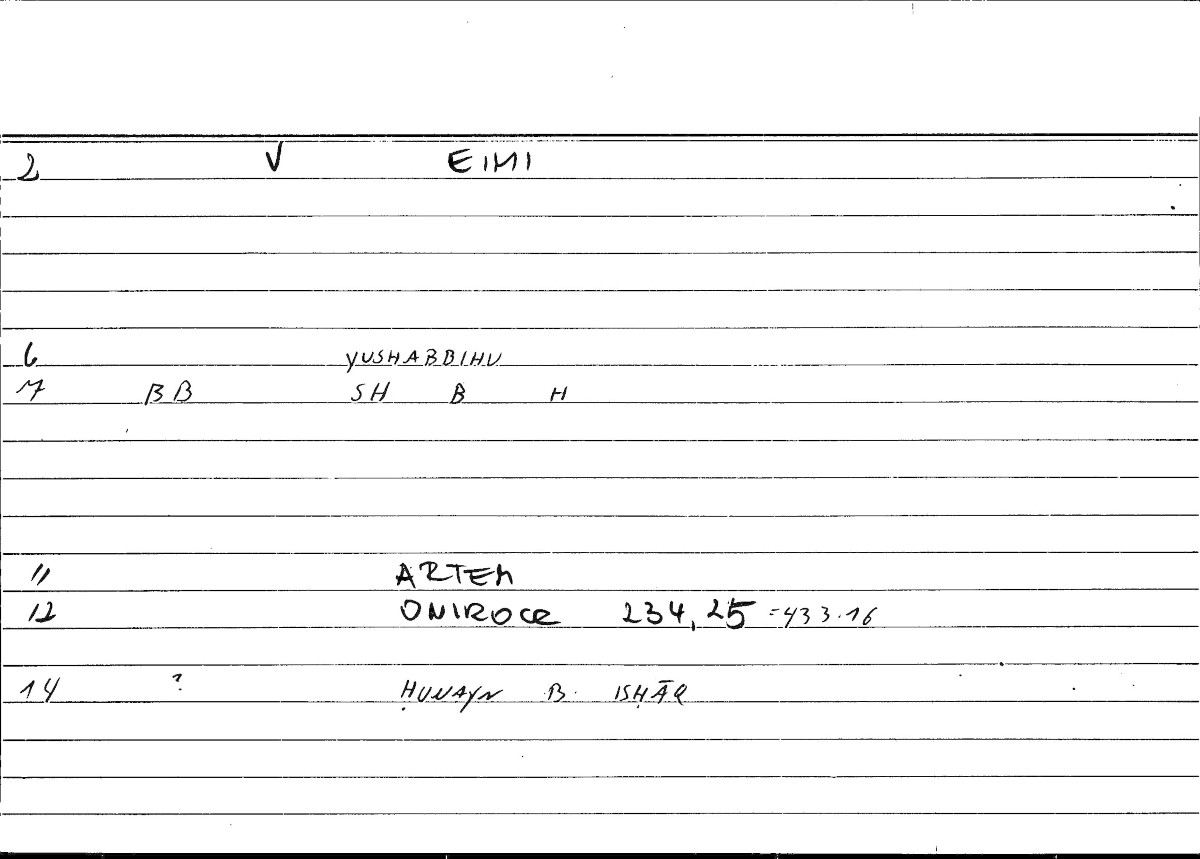 2 V EIMI
6 YUSHABBIHU
7 BB SH B H
11 ARTEM
12 ONIROCR 234,25 =433.16
14 ? ḤUNAYN B. ISḤĀQ